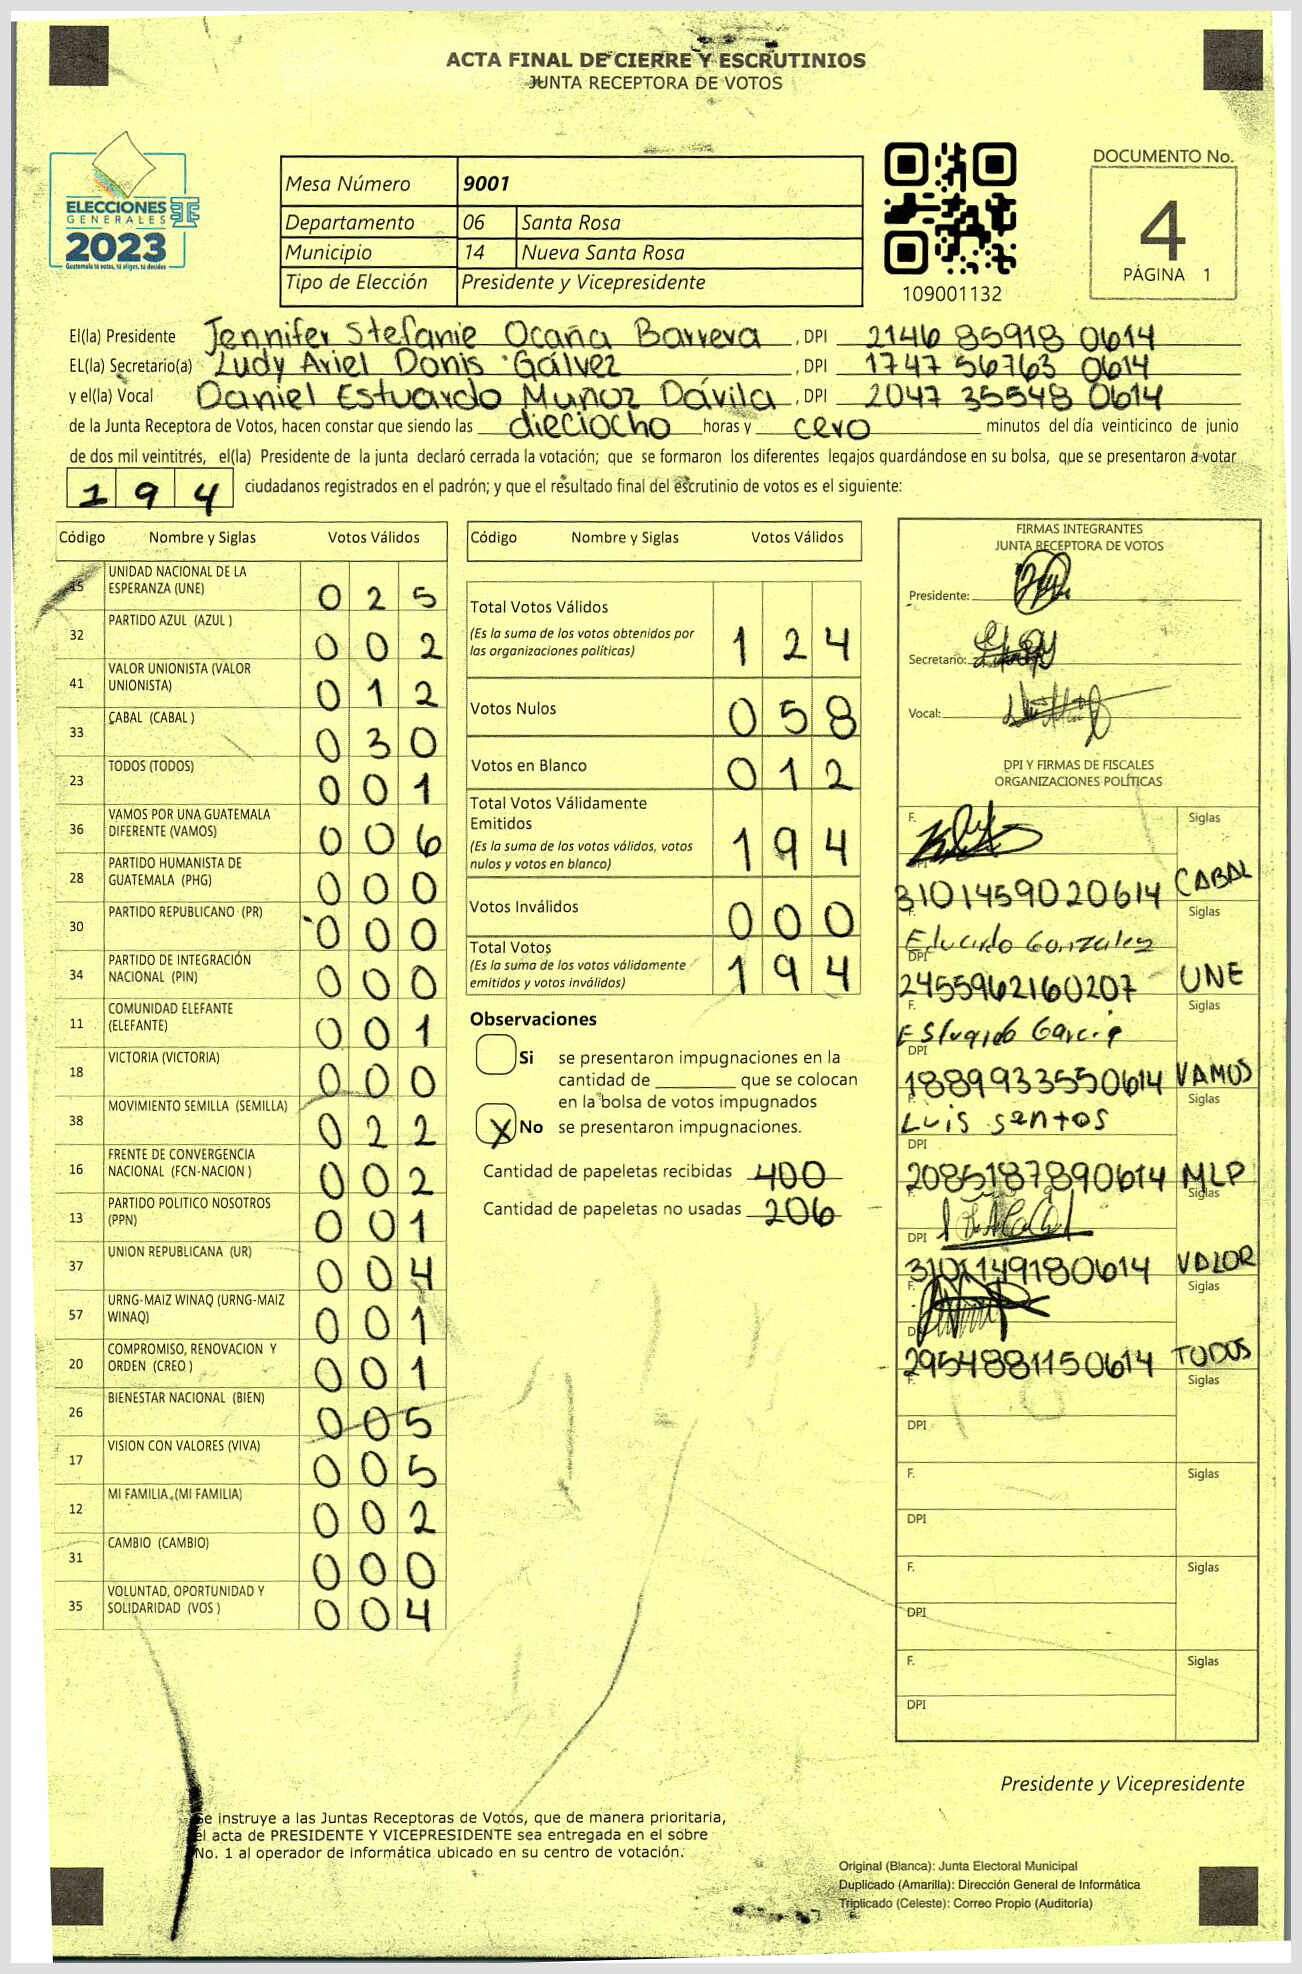 ACTA FINAL DE CIERRE Y ESCRUTINIOS
JUNTA RECEPTORA DE VOTOS
ELECCIONES
GENERALES
2023
Guatemala tú votas, tú eliges, tú decides
Mesa Número 9001
Departamento 06 Santa Rosa
Municipio 14 Nueva Santa Rosa
Tipo de Elección Presidente y Vicepresidente
109001132
DOCUMENTO No.
4
PÁGINA 1
El(la) Presidente Jennifer Stefanie Ocaña Barrera, DPI 2146 85918 0614
EL(la) Secretario(a) Ludy Ariel Donis Gálvez, DPI 1747 56763 0614
y el(la) Vocal Daniel Estuardo Muñoz Dávila, DPI 2047 35548 0614
de la Junta Receptora de Votos, hacen constar que siendo las dieciocho horas y cero minutos del día veinticinco de junio
de dos mil veintitrés, el(la) Presidente de la junta declaró cerrada la votación; que se formaron los diferentes legajos quardándose en su bolsa, que se presentaron a votar
194 ciudadanos registrados en el padrón; y que el resultado final del escrutinio de votos es el siguiente:
Código Nombre y Siglas Votos Válidos
15 UNIDAD NACIONAL DE LA ESPERANZA (UNE) 025
32 PARTIDO AZUL (AZUL ) 002
41 VALOR UNIONISTA (VALOR UNIONISTA) 012
33 CABAL (CABAL ) 030
23 TODOS (TODOS) 001
36 VAMOS POR UNA GUATEMALA DIFERENTE (VAMOS) 006
28 PARTIDO HUMANISTA DE GUATEMALA (PHG) 000
30 PARTIDO REPUBLICANO (PR) 000
34 PARTIDO DE INTEGRACIÓN NACIONAL (PIN) 000
11 COMUNIDAD ELEFANTE (ELEFANTE) 001
18 VICTORIA (VICTORIA) 000
38 MOVIMIENTO SEMILLA (SEMILLA) 022
16 FRENTE DE CONVERGENCIA NACIONAL (FCN-NACION ) 002
13 PARTIDO POLITICO NOSOTROS (PPN) 001
37 UNION REPUBLICANA (UR) 004
57 URNG-MAIZ WINAQ (URNG-MAIZ WINAQ) 001
20 COMPROMISO, RENOVACION Y ORDEN (CREO ) 001
26 BIENESTAR NACIONAL (BIEN) 005
17 VISION CON VALORES (VIVA) 005
12 MI FAMILIA (MI FAMILIA) 002
31 CAMBIO (CAMBIO) 000
35 VOLUNTAD, OPORTUNIDAD Y SOLIDARIDAD (VOS ) 004
Código Nombre y Siglas Votos Válidos
Total Votos Válidos 124
(Es la suma de los votos obtenidos por
las organizaciones políticas)
Votos Nulos 058
Votos en Blanco 012
Total Votos Válidamente
Emitidos 194
(Es la suma de los votos válidos, votos
nulos y votos en blanco)
Votos Inválidos 000
Total Votos 194
(Es la suma de los votos válidamente
emitidos y votos inválidos)
Observaciones
Si se presentaron impugnaciones en la
cantidad de ________ que se colocan
en la bolsa de votos impugnados
X No se presentaron impugnaciones.
Cantidad de papeletas recibidas 400
Cantidad de papeletas no usadas 206
FIRMAS INTEGRANTES
JUNTA RECEPTORA DE VOTOS
Presidente:
Secretario:
Vocal:
DPI Y FIRMAS DE FISCALES
ORGANIZACIONES POLÍTICAS
F. Siglas
DPI
3101459020614 CABAL
F. Siglas
Eduardo Gonzales
DPI
2455962160207 UNE
F. Siglas
Estuardo Garcia
DPI
1889933550614 VAMOS
F. Siglas
Luis santos
DPI
2085187890614 MLP
F. Siglas
DPI
3101149180614 VALOR
F. Siglas
DPI
2954881150614 TODOS
F. Siglas
DPI
F. Siglas
DPI
F. Siglas
DPI
F. Siglas
DPI
Presidente y Vicepresidente
Se instruye a las Juntas Receptoras de Votos, que de manera prioritaria,
el acta de PRESIDENTE Y VICEPRESIDENTE sea entregada en el sobre
No. 1 al operador de informática ubicado en su centro de votación.
Original (Blanca): Junta Electoral Municipal
Duplicado (Amarilla): Dirección General de Informática
Triplicado (Celeste): Correo Propio (Auditoría)